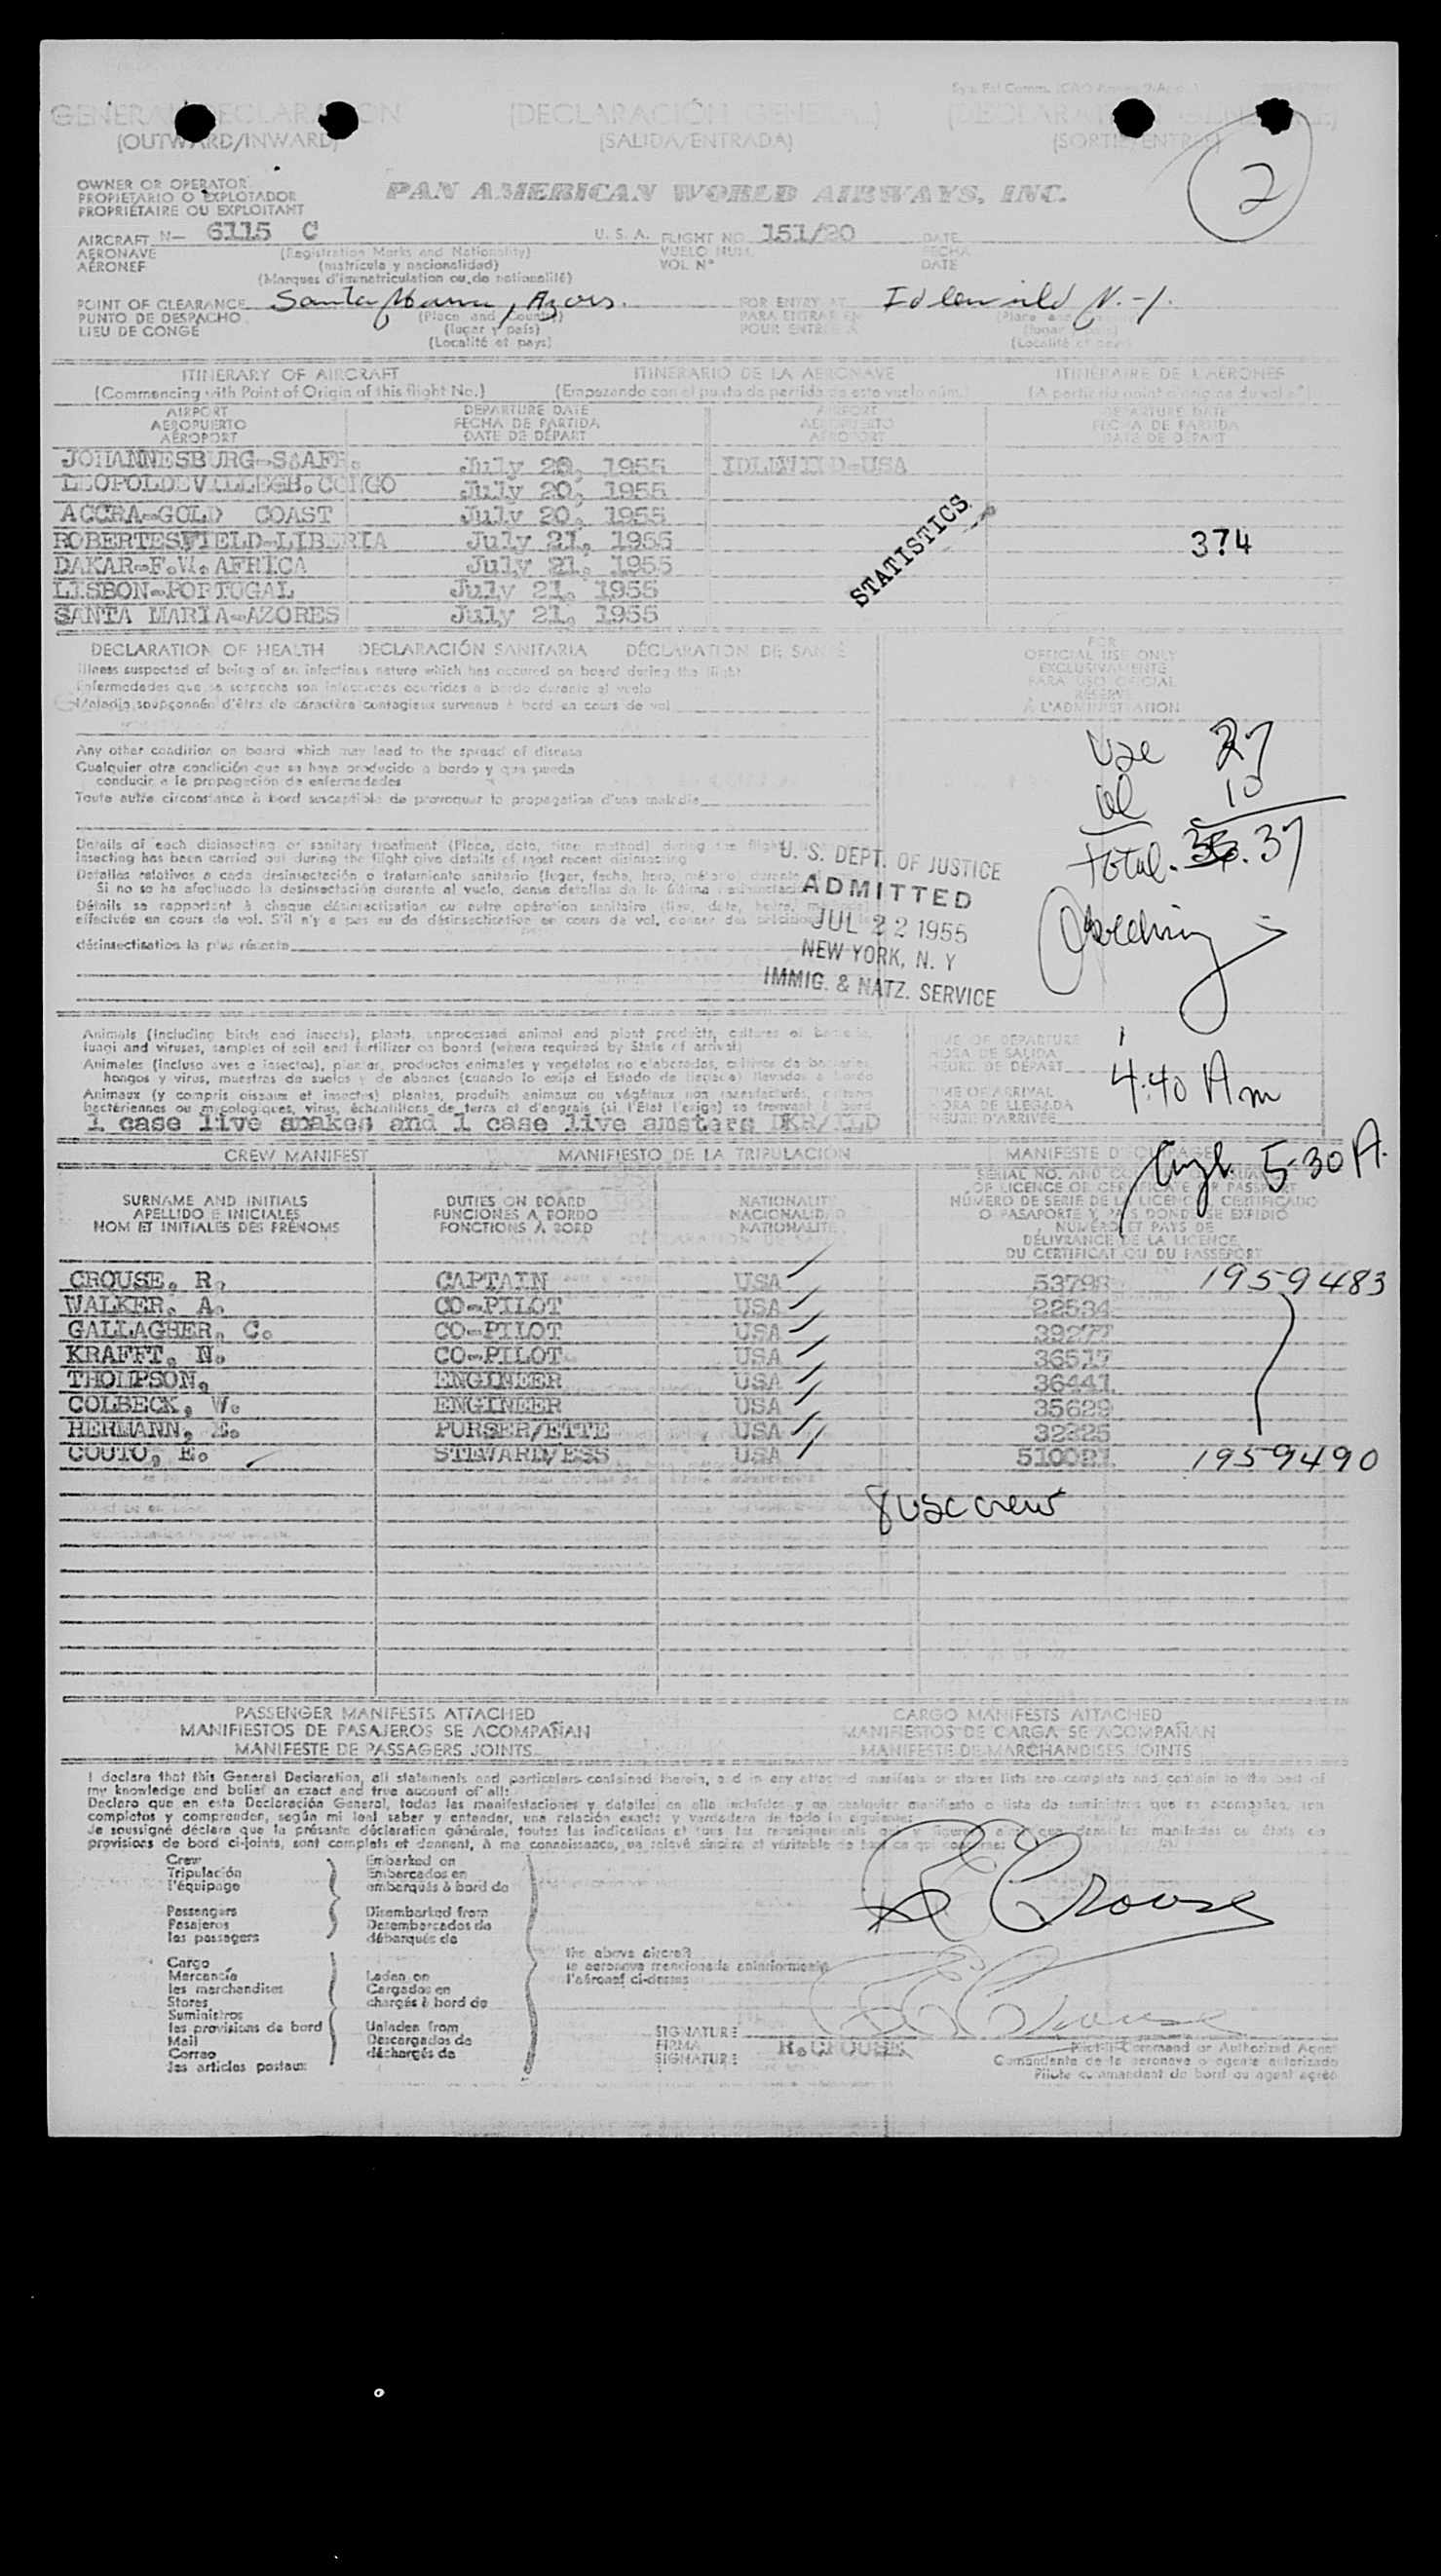 GENERAL DECLARATION (DECLARACIÓN GENERAL)
(OUTWARD/INWARD) (SALIDA/ENTRADA) (SORTIE/ENTRÉE)
2
OWNER OR OPERATOR
PROPIETARIO O EXPLOTADOR
PROPRIÉTAIRE OU EXPLOITANT
PAN AMERICAN WORLD AIRWAYS, INC.
AIRCRAFT N- 6115 C U. S. A. FLIGHT NO. 151/20 DATE
AERONAVE (Registration Marks and Nationality) VUELO NUM. FECHA
AÉRONEF (matricula y nacionalidad) VOL Nº DATE
(Marques d'immatriculation ou de nationalité)
POINT OF CLEARANCE Santa Maria, Azores. FOR ENTRY AT Idlewild N.Y.
PUNTO DE DESPACHO (Place and Country) PARA ENTRAR EN
LIEU DE CONGÉ (lugar y país) POUR ENTRÉE À
(Localité et pays)
ITINERARY OF AIRCRAFT ITINERARIO DE LA AERONAVE ITINÉRAIRE DE L'AÉRONEF
(Commencing with Point of Origin of this flight No.) (Empezando con el punto de partida de este vuelo núm.)
AIRPORT DEPARTURE DATE AIRPORT DEPARTURE DATE
AEROPUERTO FECHA DE PARTIDA AEROPUERTO FECHA DE PARTIDA
AÉROPORT DATE DE DÉPART AÉROPORT DATE DE DÉPART
JOHANNESBURG-S.AFR. July 20, 1955 IDLEWILD-USA
LEOPOLDEVILLE-B.CONGO July 20, 1955
ACCRA-GOLD COAST July 20, 1955
ROBERTESFIELD-LIBERIA July 21, 1955
DAKAR-F.W.AFRICA July 21, 1955
LISBON-PORTUGAL July 21, 1955
SANTA MARIA-AZORES July 21, 1955
STATISTICS
374
DECLARATION OF HEALTH DECLARACIÓN SANITARIA DÉCLARATION DE SANTÉ
Illness suspected of being of an infectious nature which has occured on board during the flight
Enfermedades que se sospecha son infecciosas ocurridas a bordo durante el vuelo
Maladie soupçonnée d'être de caractère contagieux survenue à bord en cours de vol
FOR
OFFICIAL USE ONLY
EXCLUSIVAMENTE
PARA USO OFICIAL
RÉSERVÉ
À L'ADMINISTRATION
Any other condition on board which may lead to the spread of disease
Cualquier otra condición que se haya producido a bordo y que pueda
conducir a la propagación de enfermedades
Toute autre circonstance à bord susceptible de provoquer la propagation d'une maladie
Usc 27
al 10
Total. 37
Details of each disinsecting or sanitary treatment (Place, date, time, method) during the flight
insecting has been carried out during the flight give details of most recent disinsecting
Detalles relativos a cada desinsectación o tratamiento sanitario (lugar, fecha, hora, método) durante
Si no se ha efectuado la desinsectación durante el vuelo, dense detalles de la última
Détails se rapportant à chaque désinsectisation ou autre opération sanitaire (lieu, date, heure,
effectuée en cours de vol. S'il n'y a pas eu de désinsectisation en cours de vol, donner des précisions
désinsectisation la plus récente
U. S. DEPT. OF JUSTICE
ADMITTED
JUL 22 1955
NEW YORK, N. Y
IMMIG. & NATZ. SERVICE
Animals (including birds and insects), plants, unprocessed animal and plant products, cultures of bacteria,
fungi and viruses, samples of soil and fertilizer on board (where required by State of arrival)
Animales (incluso aves e insectos), plantas, productos animales y vegetales no elaborados, cultivos de bacterias,
hongos y virus, muestras de suelos y de abonos (cuando lo exija el Estado de llegada) llevados a bordo
Animaux (y compris oiseaux et insectes) plantes, produits animaux ou végétaux non manufacturés,
bactériennes ou mycologiques, virus, échantillons de terre et d'engrais (si l'État l'exige) se trouvant à bord
1 case live snakes and 1 case live amsters DKR/ILD
TIME OF DEPARTURE
HORA DE SALIDA
HEURE DE DÉPART
TIME OF ARRIVAL
HORA DE LLEGADA
HEURE D'ARRIVÉE
4:40 Am
5:30 A.
CREW MANIFEST MANIFIESTO DE LA TRIPULACIÓN MANIFESTE D'ÉQUIPAGE
SURNAME AND INITIALS DUTIES ON BOARD NATIONALITY
APELLIDO E INICIALES FUNCIONES A BORDO NACIONALIDAD
NOM ET INITIALES DES PRÉNOMS FONCTIONS À BORD NATIONALITÉ
NÚMERO DE SERIE DE LA LICENCIA, CERTIFICADO
O PASAPORTE Y PAIS DONDE SE EXPIDIÓ
NUMÉRO ET PAYS DE
DÉLIVRANCE DE LA LICENCE,
DU CERTIFICAT OU DU PASSEPORT
CROUSE, R. CAPTAIN USA 53798 1959483
WALKER, A. CO-PILOT USA 22534
GALLAGHER, C. CO-PILOT USA 39277
KRAFFT, N. CO-PILOT USA 36517
THOMPSON, ENGINEER USA 36441
COLBECK, W. ENGINEER USA 35629
HERMANN, E. PURSER/ETTE USA 32325
COUTO, E. STEWARD/ESS USA 510021 1959490
8 usc crew
PASSENGER MANIFESTS ATTACHED CARGO MANIFESTS ATTACHED
MANIFIESTOS DE PASAJEROS SE ACOMPAÑAN MANIFIESTOS DE CARGA SE ACOMPAÑAN
MANIFESTE DE PASSAGERS JOINTS MANIFESTE DE MARCHANDISES JOINTS
I declare that this General Declaration, all statements and particulars contained therein, and in any attached manifests or stores lists are complete and contain to the best of
my knowledge and belief an exact and true account of all:
Declaro que en esta Declaración General, todas las manifestaciones y detalles en ella incluídos y en cualquier manifiesto o lista de suministros que se acompañan, son
completos y comprenden, según mi leal saber y entender, una relación exacta y verdadera de todo lo siguiente:
Je soussigné déclare que la présente déclaration générale, toutes les indications et tous les renseignements
provisions de bord ci-joints, sont complets et donnent, à ma connaissance, un relevé sincère et véritable de tout ce qui concerne:
Crew Embarked on
Tripulación Embarcados en
l'équipage embarqués à bord de
Passengers Disembarked from
Pasajeros Desembarcados de
les passagers débarqués de
Cargo
Mercancía Laden on
les marchandises Cargados en
Stores chargés à bord de
Suministros
les provisions de bord Unladen from
Mail Descargados de
Correo déchargés de
les articles postaux
the above aircraft
la aeronave mencionada anteriormente
l'aéronef ci-dessus
R Crouse
SIGNATURE
FIRMA R. CROUSE
SIGNATURE
Pilot in Command or Authorized Agent
Comandante de la aeronave o agente autorizado
Pilote commandant de bord ou agent agréé